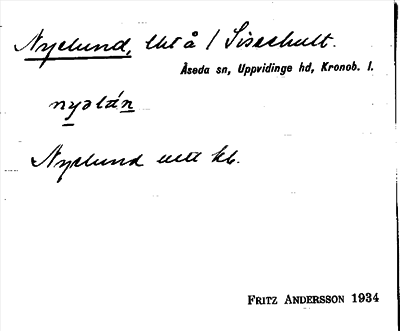 Nyelund, lht å / Sissehult.
Åseda sn, Uppvidinge hd, Kronob. l.
nyəlán
Nyelund utt kb.
FRITZ ANDERSSON 1934